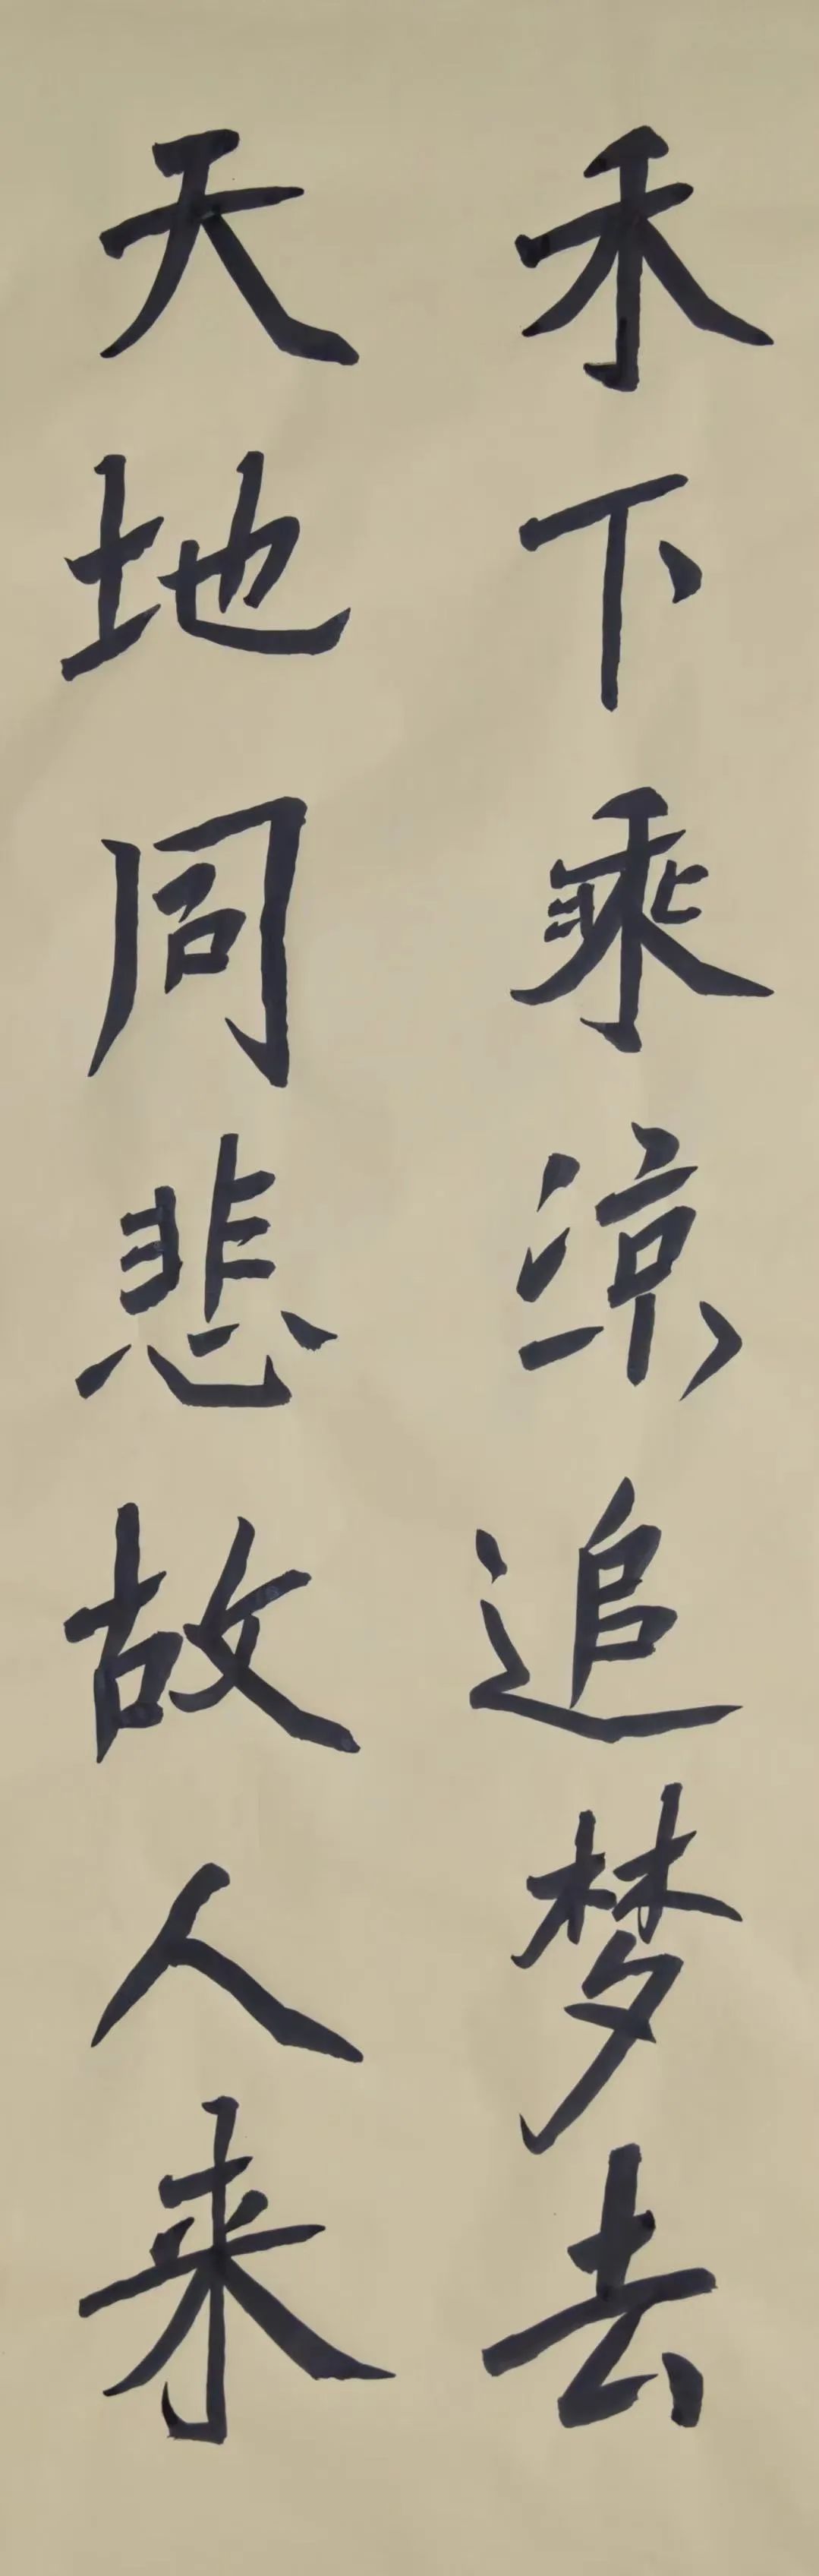 禾下乘涼追梦去
天地同悲故人来